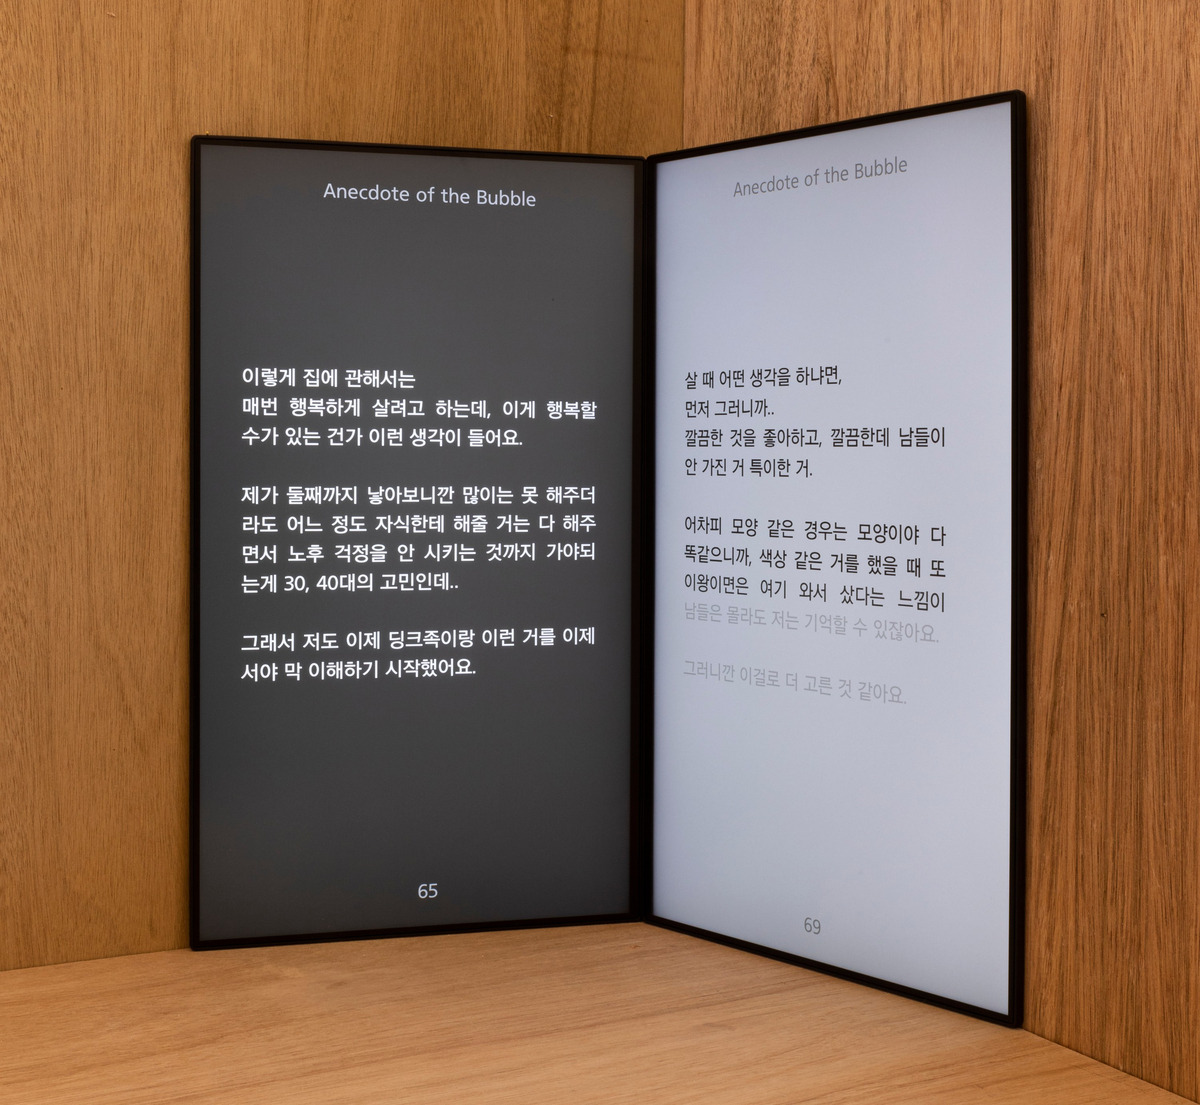 Anecdote of the Bubble
이렇게 집에 관해서는
매번 행복하게 살려고 하는데, 이게 행복할
수가 있는 건가 이런 생각이 들어요.
제가 둘째까지 낳아보니깐 많이는 못 해주더
라도 어느 정도 자식한테 해줄 거는 다 해주
면서 노후 걱정을 안 시키는 것까지 가야되
는게 30, 40대의 고민인데..
그래서 저도 이제 딩크족이랑 이런 거를 이제
서야 막 이해하기 시작했어요.
65
Anecdote of the Bubble
살 때 어떤 생각을 하냐면,
먼저 그러니까..
깔끔한 것을 좋아하고, 깔끔한데 남들이
안 가진 거 특이한 거.
어차피 모양 같은 경우는 모양이야 다
똑같으니까, 색상 같은 거를 했을 때 또
이왕이면은 여기 와서 샀다는 느낌이
남들은 몰라도 저는 기억할 수 있잖아요.
그러니깐 이걸로 더 고른 것 같아요.
69